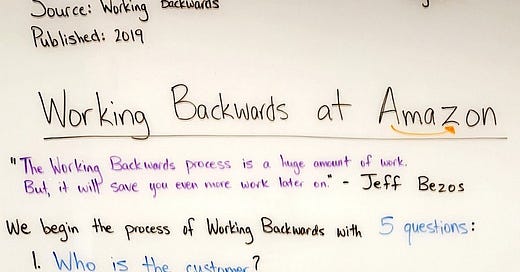 Source: Working Backwards
Published: 2019
Working Backwards at Amazon
"The Working Backwards process is a huge amount of work.
But, it will save you even more work later on." - Jeff Bezos
We begin the process of Working Backwards with 5 questions:
1. Who is the customer?